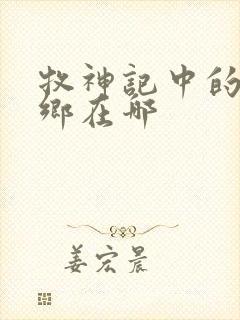 牧神記中的
鄉在哪
姜宏晨